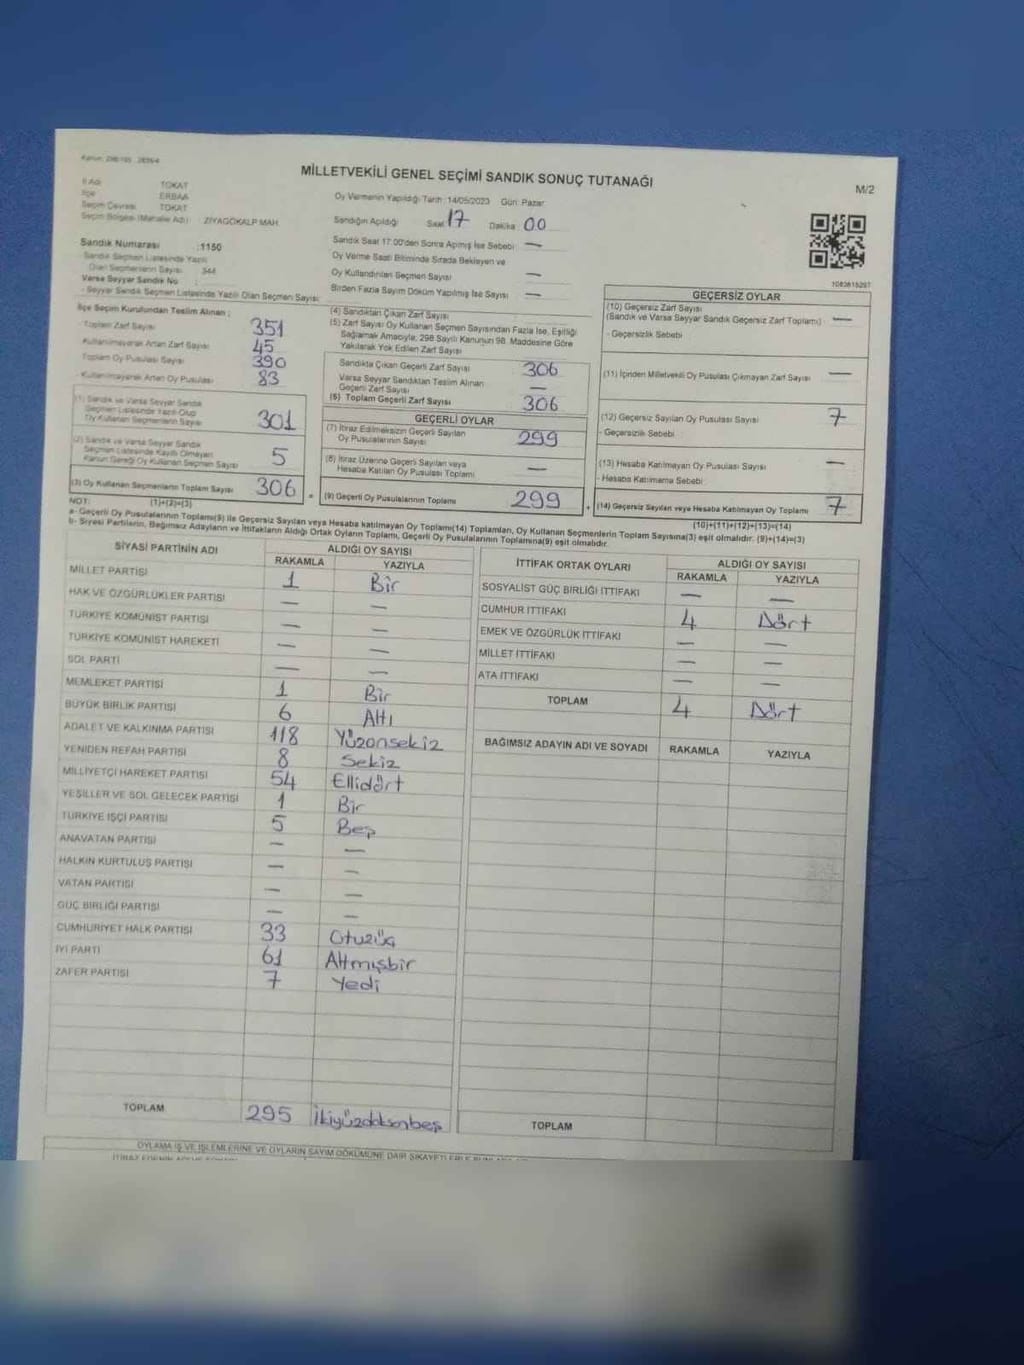 Kanun: 298/105
MİLLETVEKİLİ GENEL SEÇİMİ SANDIK SONUÇ TUTANAĞI
M/2
İl Adı TOKAT
İlçe ERBAA
Seçim Çevresi TOKAT
Seçim Bölgesi (Mahalle Adı) : ZİYAGÖKALP MAH
Sandık Numarası :1150
Sandık Seçmen Listesinde Yazılı
Olan Seçmenlerin Sayısı 344
Varsa Seyyar Sandık No
- Seyyar Sandık Seçmen Listesinde Yazılı Olan Seçmen Sayısı:
Oy Vermenin Yapıldığı Tarih: 14/05/2023 Gün: Pazar
Sandığın Açıldığı Saat 17 Dakika 00
Sandık Saat 17:00'den Sonra Açılmış İse Sebebi: —
Oy Verme Saati Bitiminde Sırada Bekleyen ve
Oy Kullandırılan Seçmen Sayısı —
Birden Fazla Sayım Döküm Yapılmış İse Sayısı —
1083615297
İlçe Seçim Kurulundan Teslim Alınan ;
- Toplam Zarf Sayısı 351
- Kullanılmayarak Artan Zarf Sayısı 45
- Toplam Oy Pusulası Sayısı 390
- Kullanılmayarak Artan Oy Pusulası 83
(1) Sandık ve Varsa Seyyar Sandık
Seçmen Listesinde Yazılı Olup
Oy Kullanan Seçmenlerin Sayısı 301
(2) Sandık ve Varsa Seyyar Sandık
Seçmen Listesinde Kayıtlı Olmayan
Kanun Gereği Oy Kullanan Seçmen Sayısı 5
(3) Oy Kullanan Seçmenlerin Toplam Sayısı 306
(4) Sandıktan Çıkan Zarf Sayısı
(5) Zarf Sayısı Oy Kullanan Seçmen Sayısından Fazla İse, Eşitliği
Sağlamak Amacıyla, 298 Sayılı Kanunun 98. Maddesine Göre
Yakılarak Yok Edilen Zarf Sayısı
Sandıkta Çıkan Geçerli Zarf Sayısı 306
Varsa Seyyar Sandıktan Teslim Alınan
Geçerli Zarf Sayısı —
(6) Toplam Geçerli Zarf Sayısı 306
GEÇERLİ OYLAR
(7) İtiraz Edilmeksizin Geçerli Sayılan
Oy Pusulalarının Sayısı 299
(8) İtiraz Üzerine Geçerli Sayılan veya
Hesaba Katılan Oy Pusulası Toplamı —
(9) Geçerli Oy Pusulalarının Toplamı 299
GEÇERSİZ OYLAR
(10) Geçersiz Zarf Sayısı
(Sandık ve Varsa Seyyar Sandık Geçersiz Zarf Toplamı) —
- Geçersizlik Sebebi
(11) İçinden Milletvekili Oy Pusulası Çıkmayan Zarf Sayısı —
(12) Geçersiz Sayılan Oy Pusulası Sayısı 7
- Geçersizlik Sebebi
(13) Hesaba Katılmayan Oy Pusulası Sayısı —
- Hesaba Katılmama Sebebi
(14) Geçersiz Sayılan veya Hesaba Katılmayan Oy Toplamı 7
NOT: (1)+(2)=(3)
(10)+(11)+(12)+(13)=(14)
a- Geçerli Oy Pusulalarının Toplamı(9) ile Geçersiz Sayılan veya Hesaba katılmayan Oy Toplamı(14) Toplamları, Oy Kullanan Seçmenlerin Toplam Sayısına(3) eşit olmalıdır. (9)+(14)=(3)
b- Siyasi Partilerin, Bağımsız Adayların ve İttifakların Aldığı Ortak Oyların Toplamı, Geçerli Oy Pusulalarının Toplamına(9) eşit olmalıdır.
SİYASİ PARTİNİN ADI ALDIĞI OY SAYISI
RAKAMLA YAZIYLA
MİLLET PARTİSİ 1 Bir
HAK VE ÖZGÜRLÜKLER PARTİSİ — —
TÜRKİYE KOMÜNİST PARTİSİ — —
TÜRKİYE KOMÜNİST HAREKETİ — —
SOL PARTİ — —
MEMLEKET PARTİSİ 1 Bir
BÜYÜK BİRLİK PARTİSİ 6 Altı
ADALET VE KALKINMA PARTİSİ 118 Yüzonsekiz
YENİDEN REFAH PARTİSİ 8 Sekiz
MİLLİYETÇİ HAREKET PARTİSİ 54 Ellidört
YEŞİLLER VE SOL GELECEK PARTİSİ 1 Bir
TÜRKİYE İŞÇİ PARTİSİ 5 Beş
ANAVATAN PARTİSİ — —
HALKIN KURTULUŞ PARTİSİ — —
VATAN PARTİSİ — —
GÜÇ BİRLİĞİ PARTİSİ — —
CUMHURİYET HALK PARTİSİ 33 Otuzüç
İYİ PARTİ 61 Altmışbir
ZAFER PARTİSİ 7 Yedi
TOPLAM 295 İkiyüzdoksanbeş
İTTİFAK ORTAK OYLARI ALDIĞI OY SAYISI
RAKAMLA YAZIYLA
SOSYALİST GÜÇ BİRLİĞİ İTTİFAKI — —
CUMHUR İTTİFAKI 4 Dört
EMEK VE ÖZGÜRLÜK İTTİFAKI — —
MİLLET İTTİFAKI — —
ATA İTTİFAKI — —
TOPLAM 4 Dört
BAĞIMSIZ ADAYIN ADI VE SOYADI RAKAMLA YAZIYLA
TOPLAM
OYLAMA İŞ VE İŞLEMLERİNE VE OYLARIN SAYIM DÖKÜMÜNE DAİR ŞİKAYETLERLE